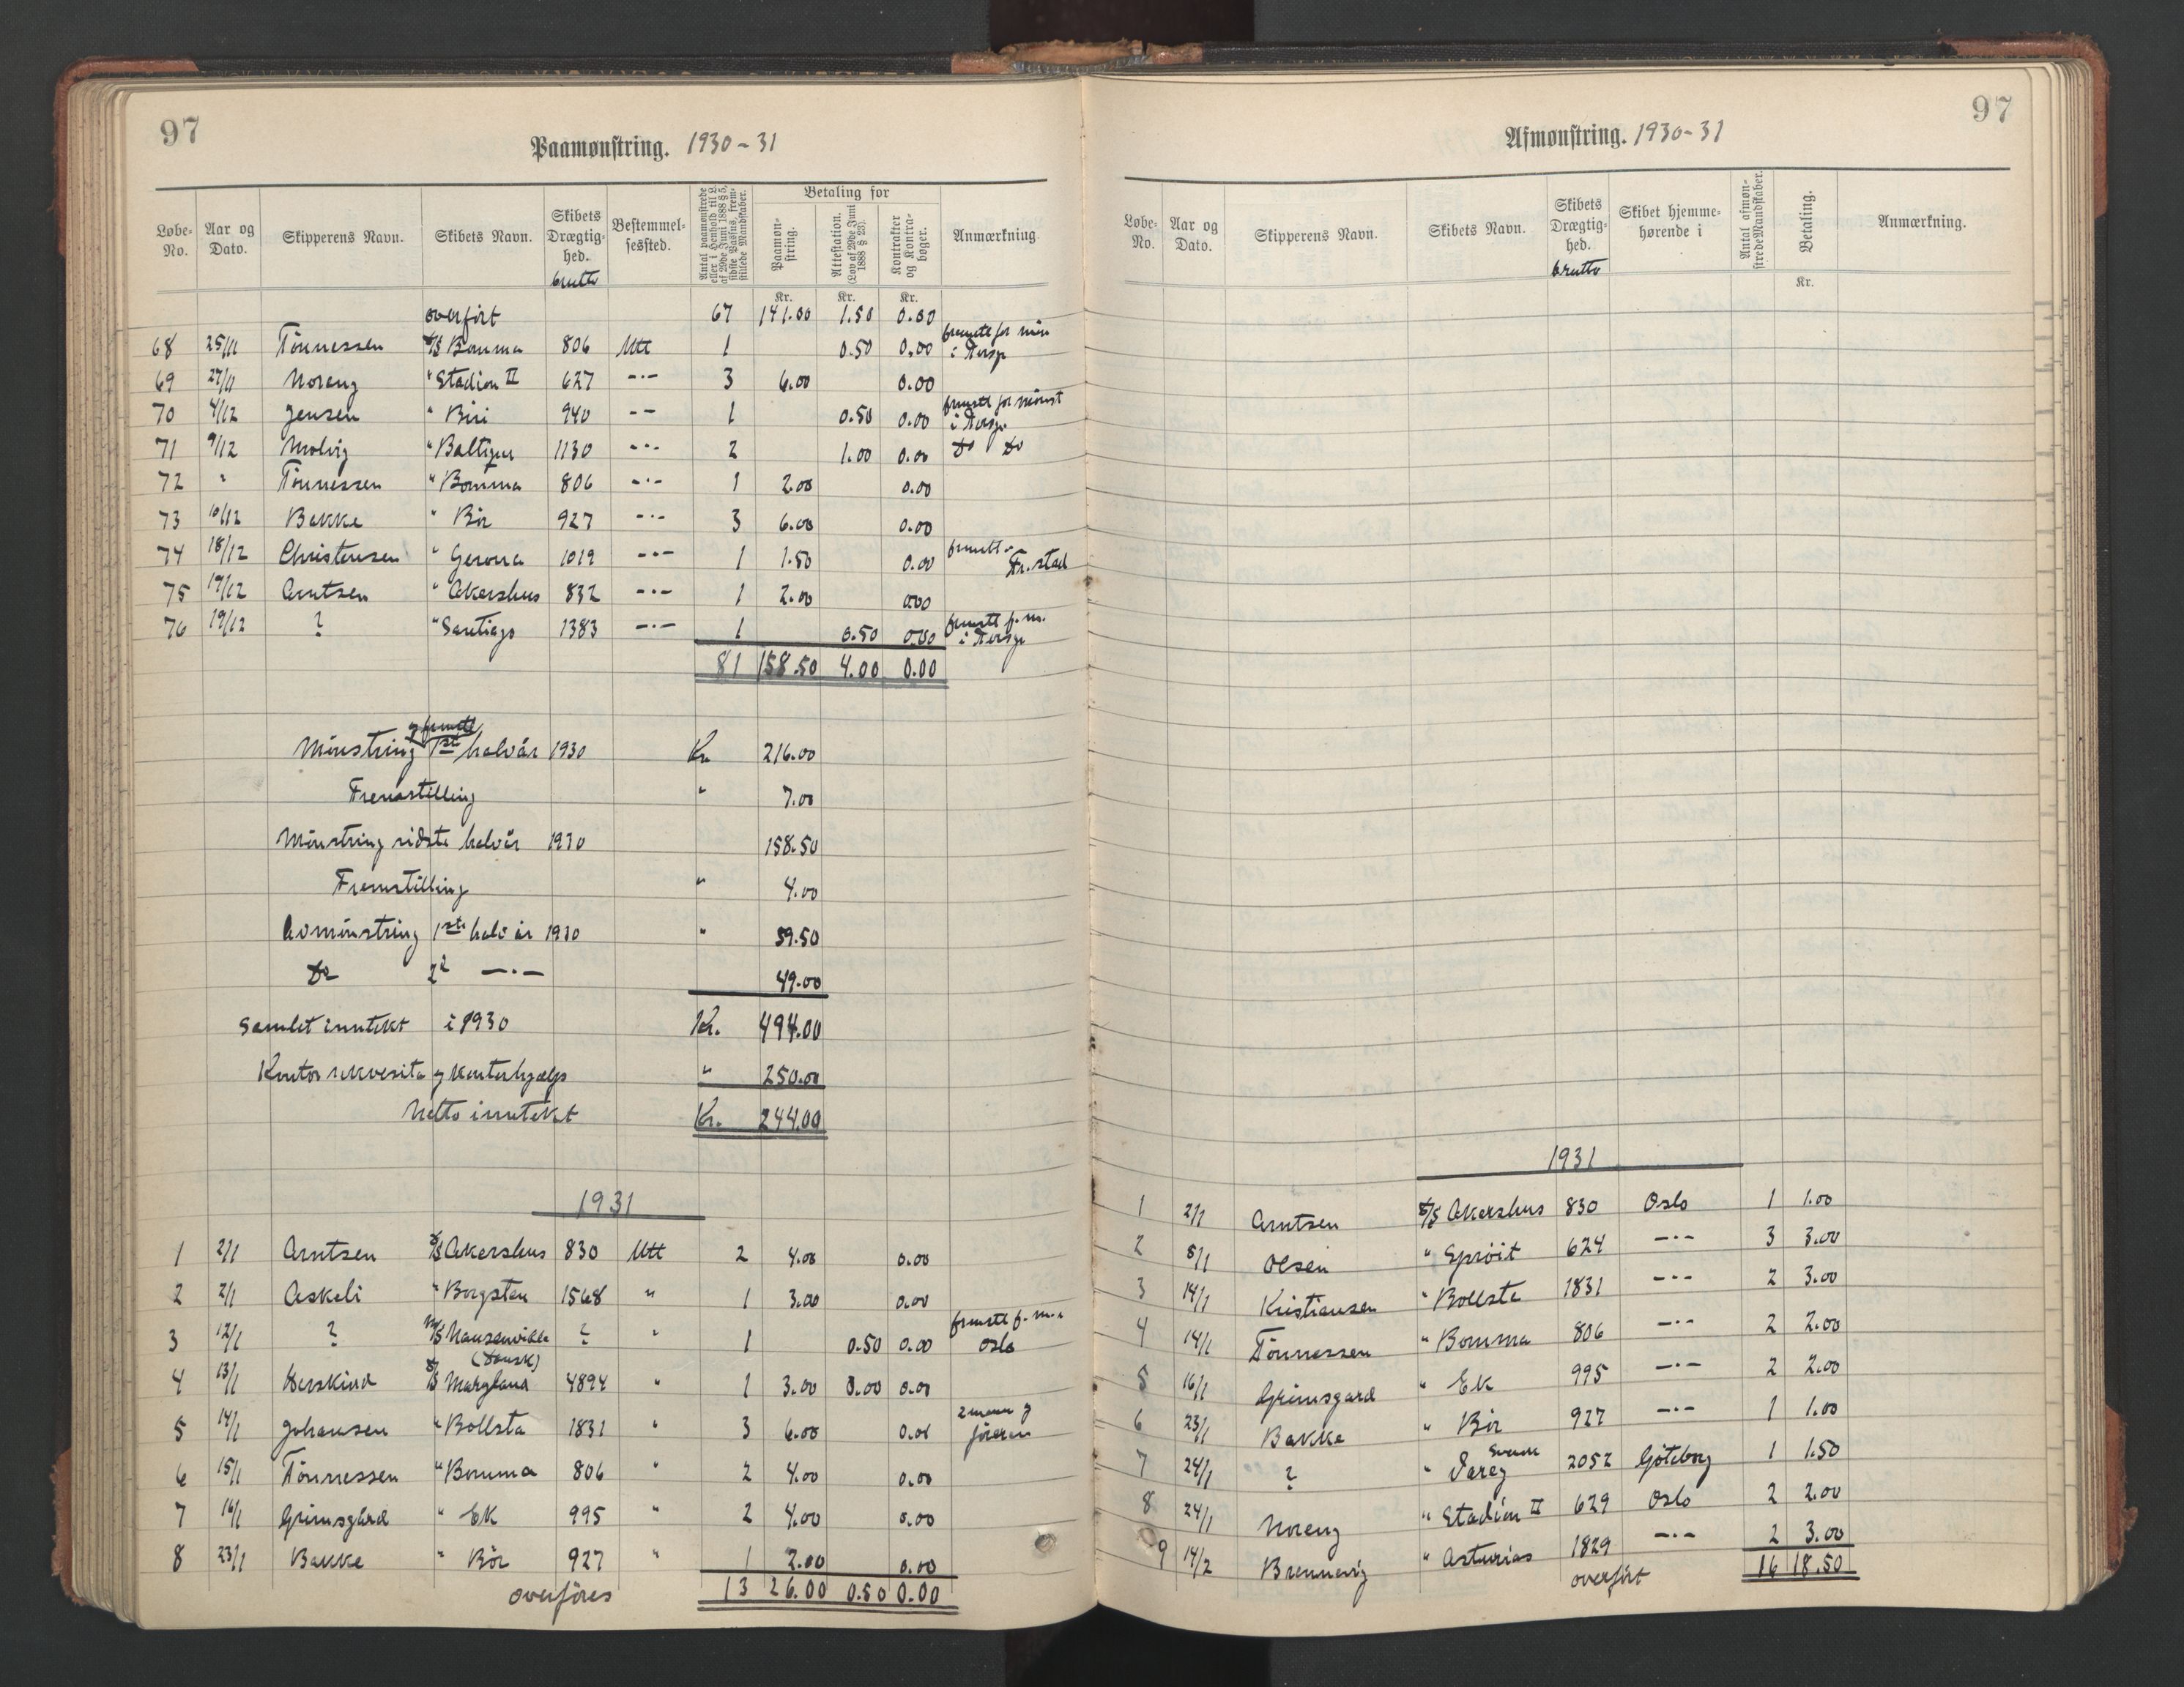 97
Paamønstring. 1930-31
Løbe-No. Aar og Dato. Skipperens Navn. Skibets Navn. Skibets Drægtighed. brutto Bestemmelsessted. Antal paamønstrede eller i Henhold til L. af 29de Juni 1888 § 5, sidste Passus, fremstillede Mandskaber. Betaling for Paamønstring. Attestation. (Lov af 29de Juni 1888 § 23). Kontrakter og Kontrabøger. Anmærkning
Kr. Kr. Kr.
overfört 67 141.00 1.50 0.00
68 25/11 Tönnessen S/S Bomma 806 Utt 1 0.50 0.00 fremstt for mön i Tersp
69 27/11 Noreng " Stadion II 627 -"- 3 6.00 0.00
70 4/12 Jensen " Biri 940 -"- 1 0.50 0.00 fremstt for mönst i Tersp
71 9/12 Molvig " Baltique 1130 -"- 2 1.00 0.00 Do Do
72 " Tönnessen " Bomma 806 -"- 1 2.00 0.00
73 10/12 Bakke " Bör 927 -"- 3 6.00 0.00
74 18/12 Christensen " Gerona 1019 -"- 1 1.50 0.00 Fr.stad
75 19/12 Arntsen " Akershus 832 -"- 1 2.00 0.00
76 19/12 ? " Santiago 1383 -"- 1 0.50 0.00 fremstt f. m. i Tersp
81 158.50 4.00 0.00
Mönstring 1ste halvår 1930 Kr. 216.00
Fremstilling " 7.00
Mönstring sidste halvår 1930 158.50
Fremstilling " 4.00
Avmönstring 1ste halvår 1930 " 59.50
Do 2d -"- 49.00
Samlet inntekt i 1930 Kr. 494.00
Kontorrekvesita og kontorhjælp " 250.00
Netto inntekt Kr. 244.00
1931
1 2/1 Arntsen S/S Akershus 830 Utt 2 4.00 0.00
2 2/1 Askeli " Borgsten 1568 " 1 3.00 0.00
3 12/1 ? M/S ? " 1 0.50 0.00 fremstt f. m. i Oslo
4 13/1 Herskind (Dansk) S/S Margland 4894 " 1 3.00 0.00 0.00
5 14/1 Johansen " Bollsta 1831 " 3 6.00 0.00 2 mann og föreren
6 15/1 Tönnessen " Bomma 806 " 2 4.00 0.00
7 16/1 Grimsgård " Ek 995 " 2 4.00 0.00
8 23/1 Bakke " Bör 927 " 1 2.00 0.00
overföres 13 26.00 0.50 0.00
97
Afmønstring. 1930-31
Løbe-No. Aar og Dato. Skipperens Navn. Skibets Navn. Skibets Drægtighed. brutto Skibet hjemmehørende i Antal afmønstrede Mandskaber. Betaling. Anmærkning.
Kr.
1931
1 2/1 Arntsen S/S Akershus 830 Oslo 1 1.00
2 5/1 Olsen " Spröit 624 -"- 3 3.00
3 14/1 Kristiansen " Bollsta 1831 -"- 2 3.00
4 14/1 Tönnessen " Bomma 806 -"- 2 2.00
5 16/1 Grimsgard " Ek 995 -"- 2 2.00
6 23/1 Bakke " Bör 927 -"- 1 1.00
7 24/1 ? " Svensk 2052 Göteborg 1 1.50
8 24/1 Noreng " Stadion II 629 Oslo 2 2.00
9 14/2 Brennevig " Asturias 1829 -"- 2 3.00
overfört 16 18.50